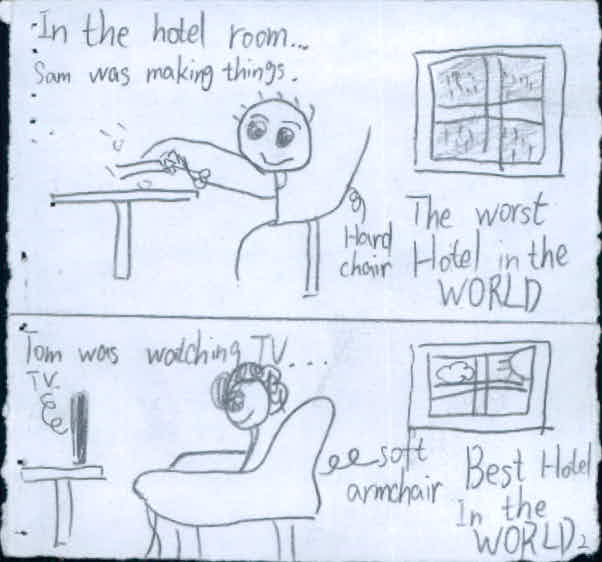 In the hotel room...
Sam was making things.
Hard
chair
The worst
Hotel in the
WORLD
Tom was watching TV...
TV.
soft
armchair
Best Hotel
In the
WORLD2